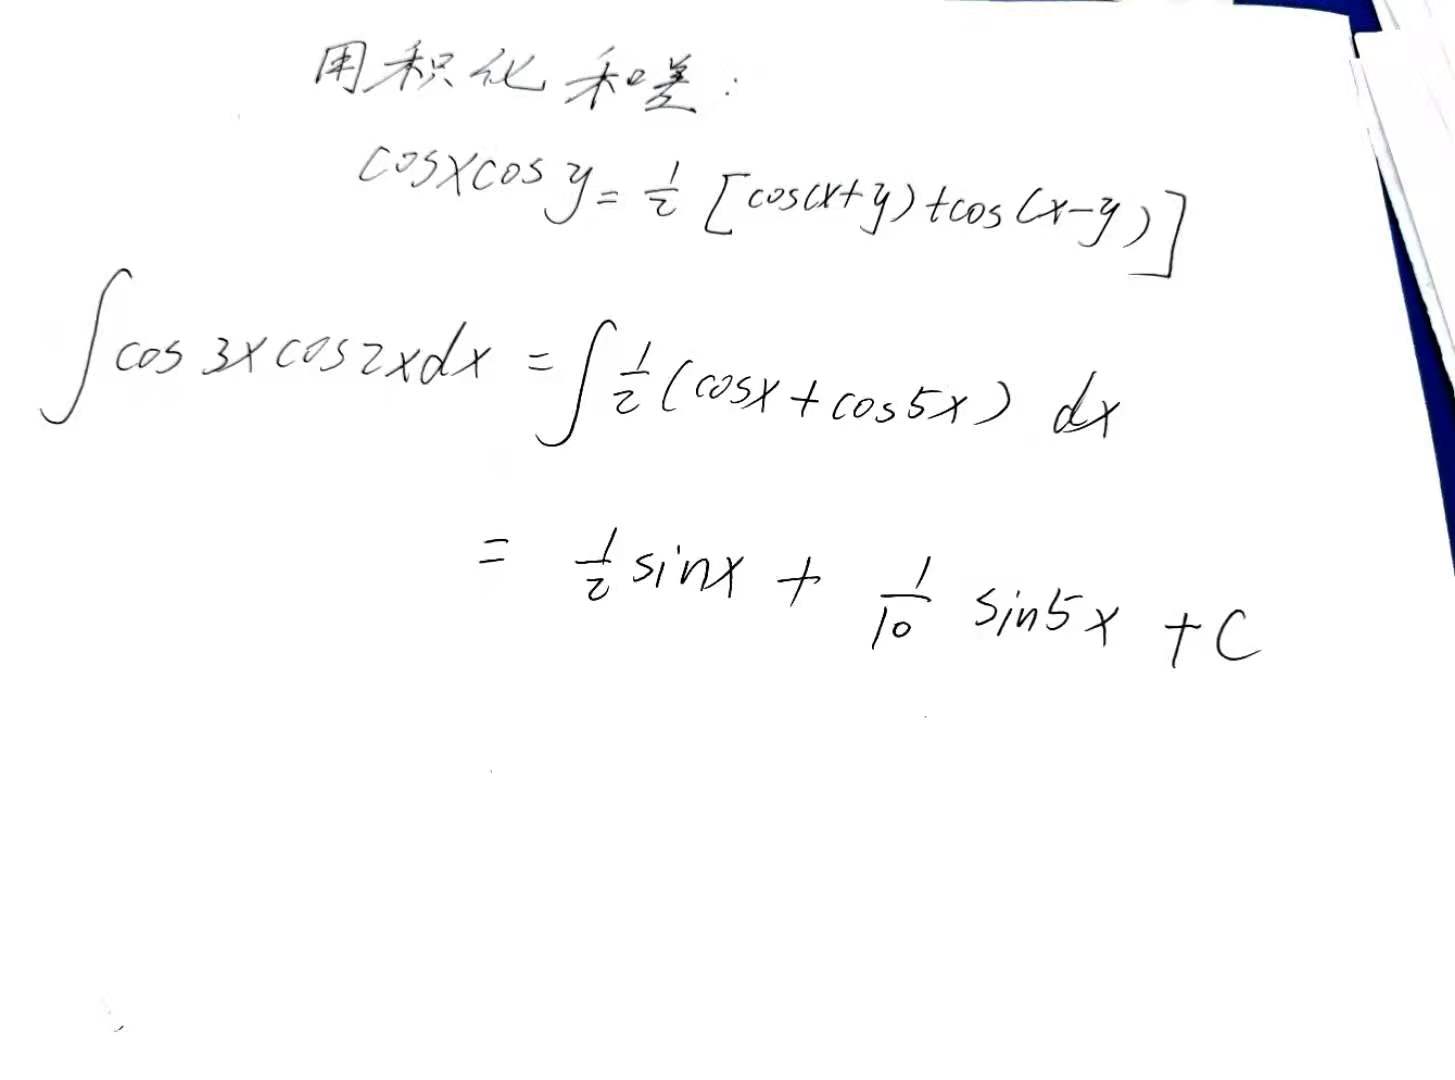 用积化和差:
cosxcosy=½[cos(x+y)+cos(x-y)]
∫cos3xcos2xdx=∫½(cosx+cos5x)dx
=½sinx+1/10 sin5x+C